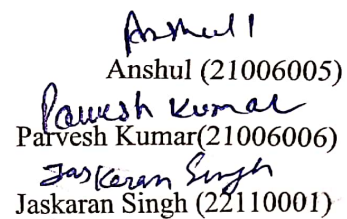 Anshul
Anshul (21006005)
Parvesh Kumar
Parvesh Kumar(21006006)
Jaskaran Singh
Jaskaran Singh (22110001)